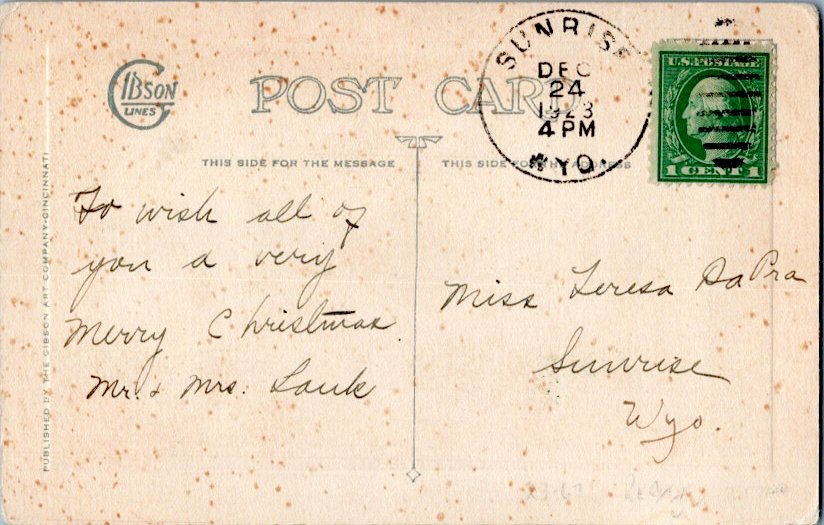 GIBSON
LINES
POST CARD
SUNRISE
DEC
24
1923
4 PM
WYO
U.S. POSTAGE
1 CENT 1
THIS SIDE FOR THE MESSAGE
THIS SIDE FOR THE ADDRESS
To wish all of
you a very
Merry Christmas
Mr. & Mrs. Lauk
Miss Teresa DaPra
Sunrise
Wyo.
PUBLISHED BY THE GIBSON ART COMPANY-CINCINNATI